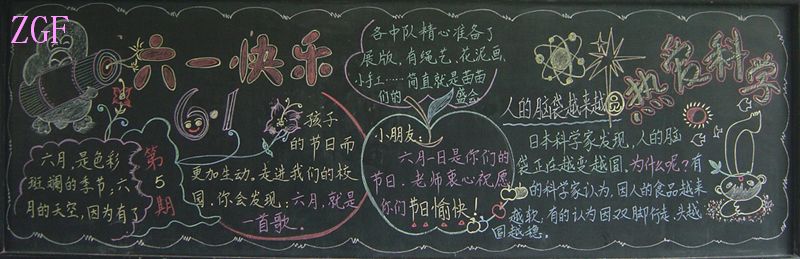 ZGF
六一快乐
第5期
六月,是色彩
斑斓的季节,六
月的天空,因为有了
6·1
孩子
的节日而
更加生动。走进我们的校
园,你会发现:六月,就是
一首歌。
各中队精心准备了
展版,有绳艺,花泥画,
小手工……简直就是苗苗
们的 盛会
小朋友,
六月一日是你们的
节日,老师衷心祝愿
你们节日愉快!
热爱科学
人的脑袋越来越圆
日本科学家发现,人的脑
袋正在越变越圆,为什么呢?有
的科学家认为,因人的食品越来
越软,有的认为因双脚行走,头越
圆越稳。